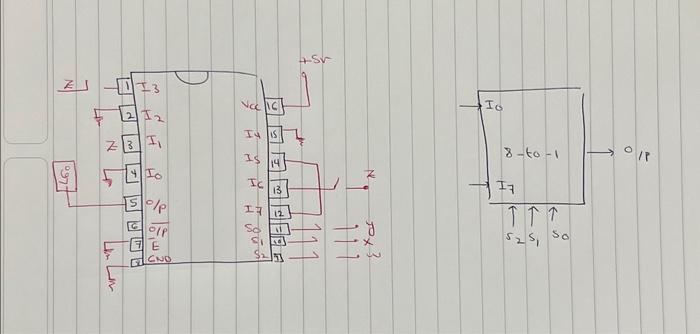 +5v
Z 1 I3
Vcc 16
2 I2
I4 15
Z 3 I1
I5 14
4 I0
I6 13 Z
5 O/P
I7 12
6 O/P
S0 11 y
7 E
S1 10 x
8 GND
S2 9 w
I0
8-to-1
O/P
I7
S2 S1 S0